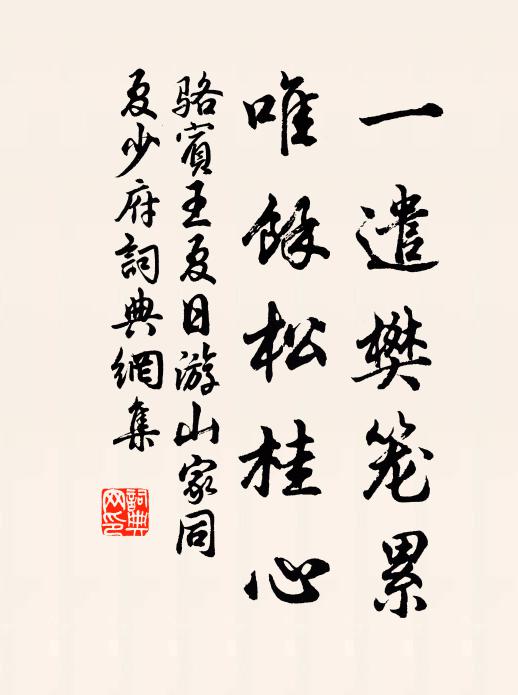 一遣樊笼累
唯餘松桂心
骆賓王夏日游山家同
夏少府詞典網集
詞典
网印